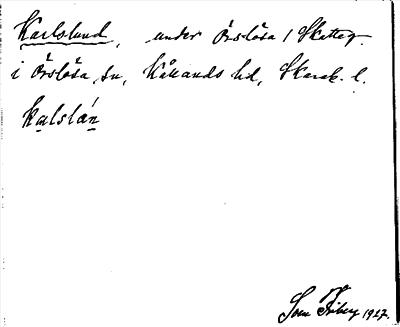 Karlslund, under Örslösa 1 Skatteg.
i Örslösa sn, Kållands hd, Skarab. l.
kalslán
Sven Friberg 1927.